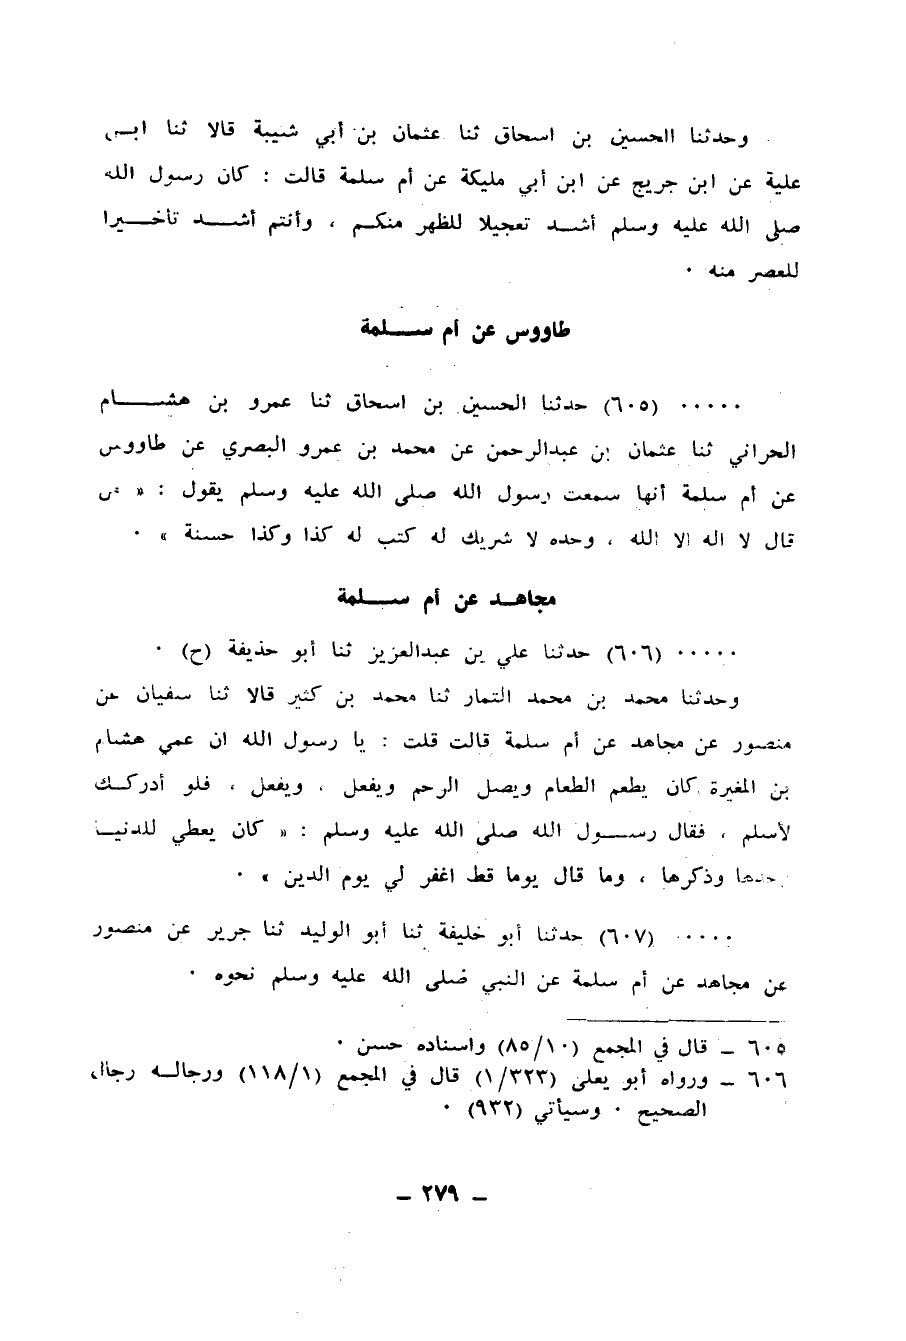 وحدثنا الحسين بن اسحاق ثنا عثمان بن أبي شيبة قالا ثنا ابن
علية عن ابن جريج عن ابن أبي مليكة عن أم سلمة قالت : كان رسول الله
صلى الله عليه وسلم أشد تعجيلا للظهر منكم ، وأنتم أشد تأخيرا
للعصر منه ٠
طاووس عن أم سلمة
٠٠٠٠٠ (٦٠٥) حدثنا الحسين بن اسحاق ثنا عمرو بن هشام
الحراني ثنا عثمان بن عبدالرحمن عن محمد بن عمرو البصري عن طاووس
عن أم سلمة أنها سمعت رسول الله صلى الله عليه وسلم يقول : « من
قال لا اله الا الله ، وحده لا شريك له كتب له كذا وكذا حسنة » ٠
مجاهد عن أم سلمة
٠٠٠٠٠ (٦٠٦) حدثنا علي بن عبدالعزيز ثنا أبو حذيفة (ح) ٠
وحدثنا محمد بن محمد التمار ثنا محمد بن كثير قالا ثنا سفيان عن
منصور عن مجاهد عن أم سلمة قالت قلت : يا رسول الله ان عمي هشام
بن المغيرة كان يطعم الطعام ويصل الرحم ويفعل ، ويفعل ، فلو أدركك
لأسلم ، فقال رسول الله صلى الله عليه وسلم : « كان يعطي للدنيا
وذكرها ، وما قال يوما قط اغفر لي يوم الدين » ٠
٠٠٠٠٠ (٦٠٧) حدثنا أبو خليفة ثنا أبو الوليد ثنا جرير عن منصور
عن مجاهد عن أم سلمة عن النبي صلى الله عليه وسلم نحوه ٠
٦٠٥ ـ قال في المجمع (٨٥/١٠) واسناده حسن ٠
٦٠٦ ـ ورواه أبو يعلى (١/٣٢٣) قال في المجمع (١١٨/١) ورجاله رجال
الصحيح ٠ وسيأتي (٩٣٢) ٠
ـ ٢٧٩ ـ